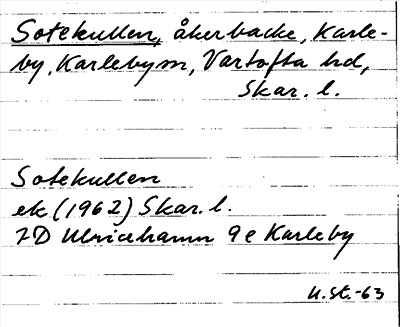 Sotekullen, åkerbacke, Karle-
by, Karleby sn, Vartofta hd,
Skar. l.
Sotekullen
ek (1962) Skar. l.
7D Ulricehamn 9e Karleby
U.St.-63